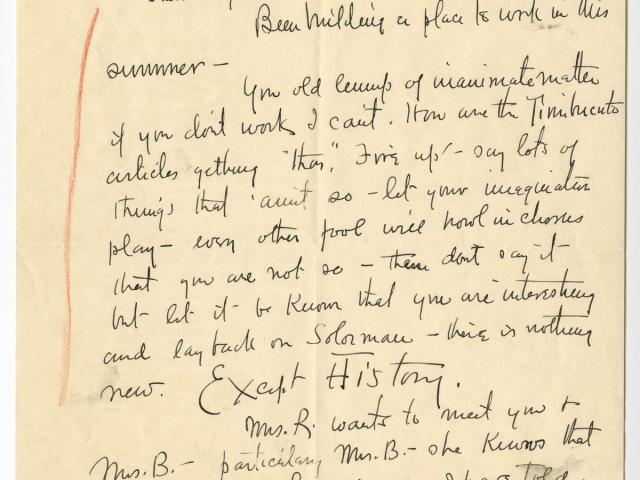 Been building a place to work in this
summer –
You old lump of inanimate matter
if you don't work I can't. How are the Timbucto
articles getting "thar," Fire up – say lots of
things that 'aint so – let your imagination
play – every other fool will howl in chorus
that you are not so – then dont say it
but let it be known that you are interesting
and lay back on Solomau – there is nothing
new. Except History.
Mrs. R. wants to meet you &
Mrs. B. – particulary Mrs. B. – she knows that
told